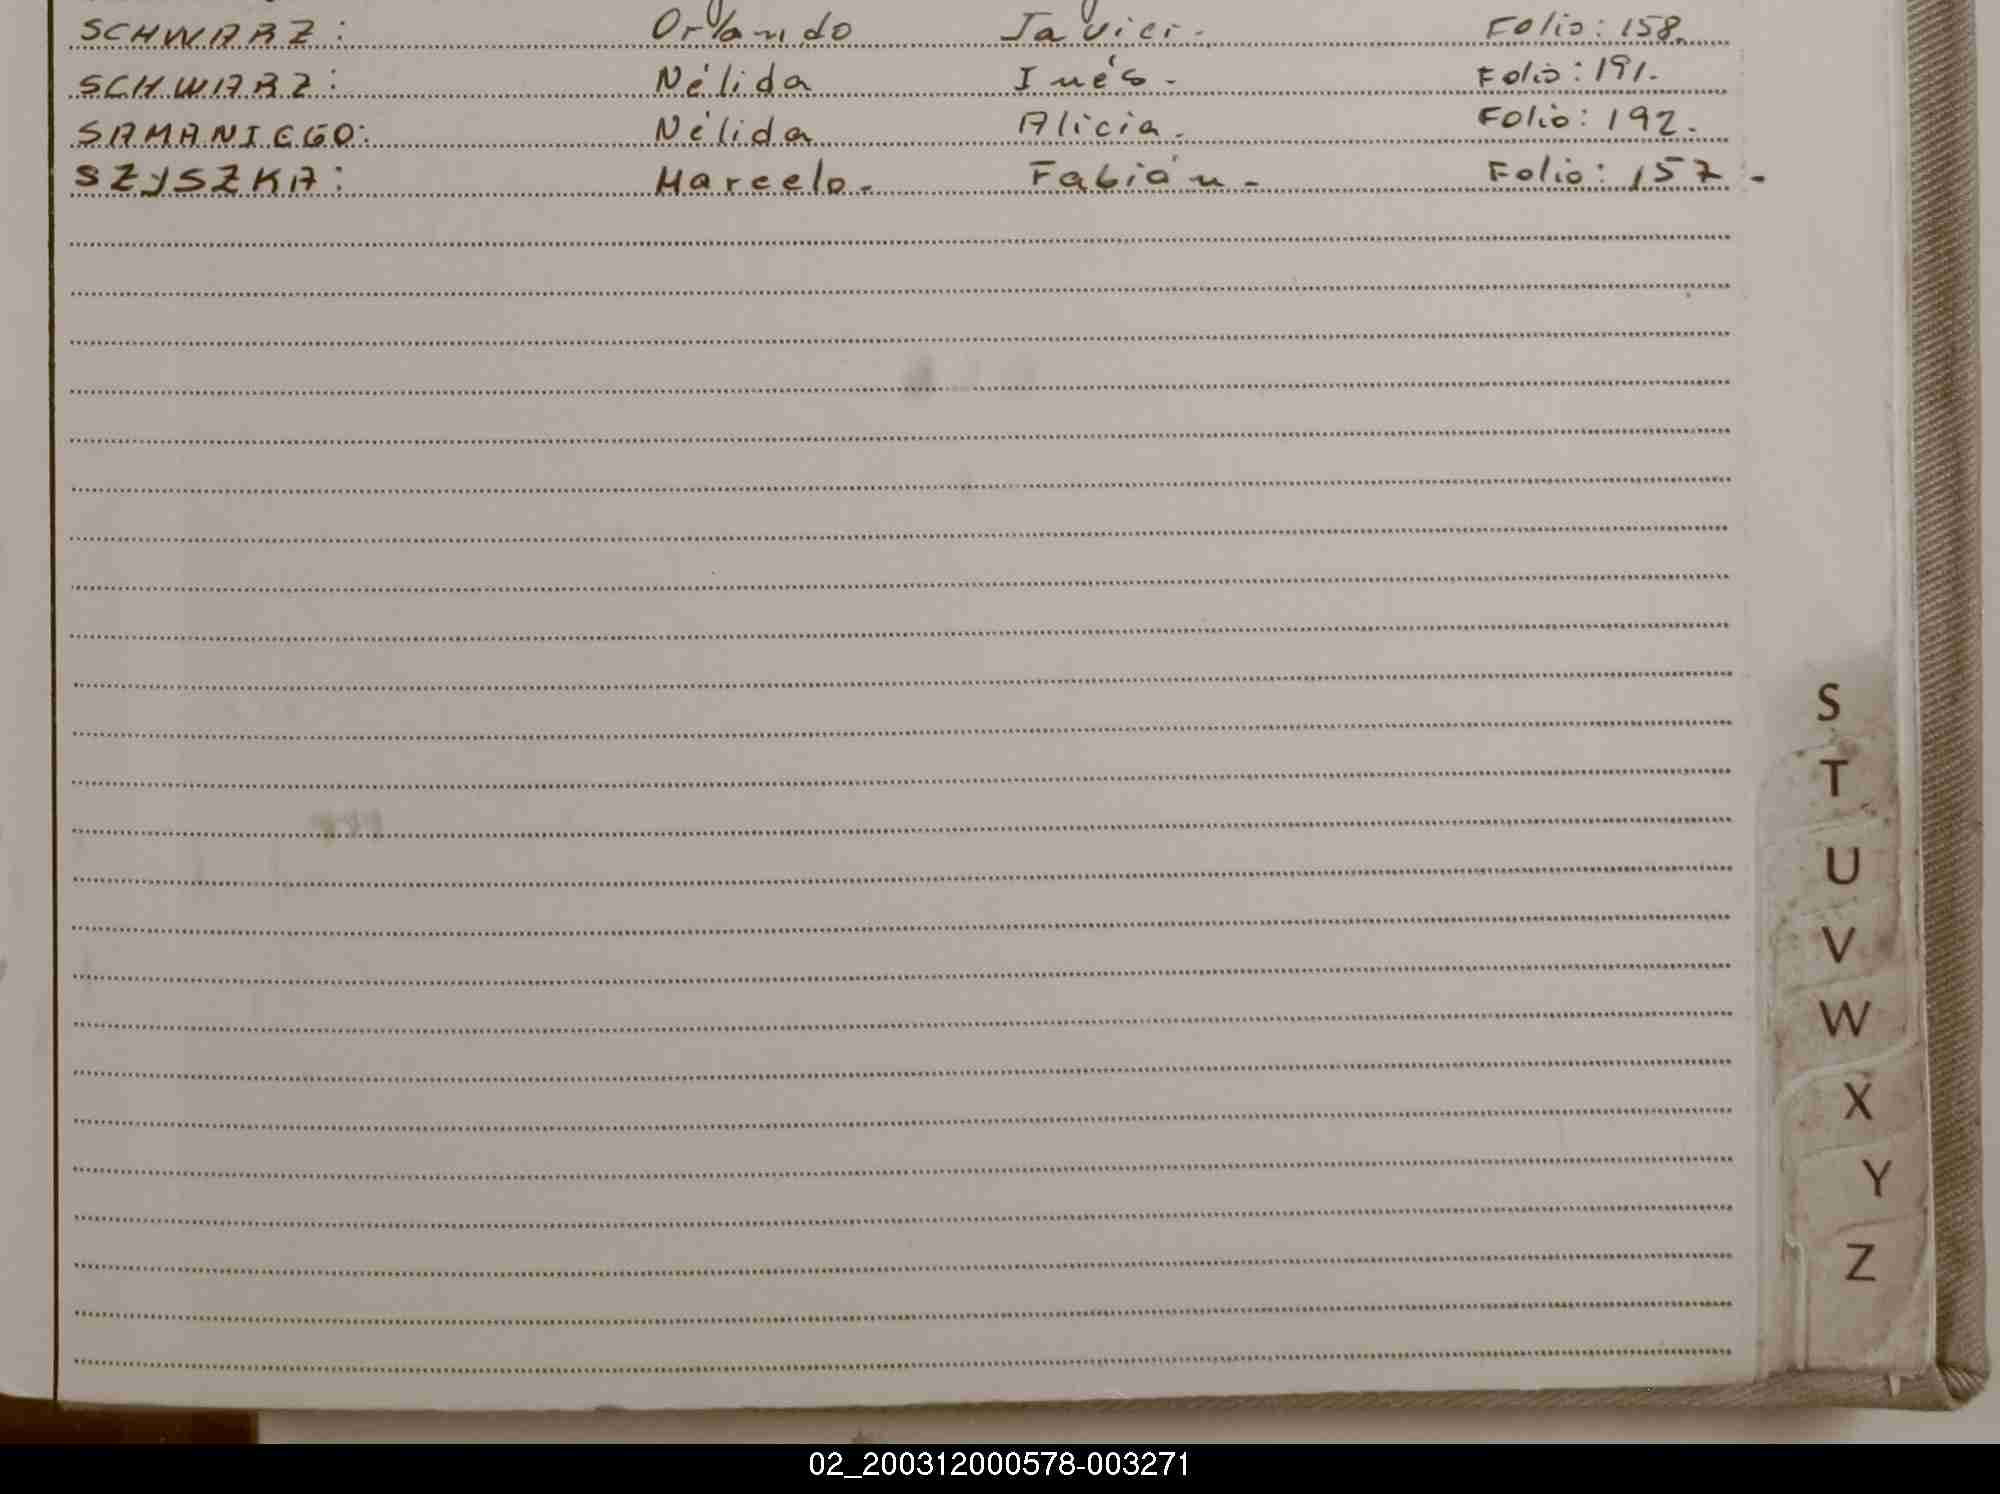 SCHWARZ: Orlando Javier. Folio: 158.
SCHWARZ: Nélida Inés. Folio: 191.
SAMANIEGO: Nélida Alicia. Folio: 192.
SZYSZKA: Marcelo. Fabián. Folio: 157.
S
T
U
V
W
X
Y
Z
02_200312000578-003271